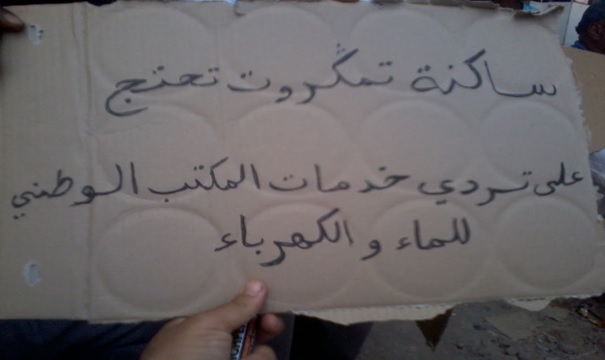 ساكنة تمݣروت تحتج
على تردي خدمات المكتب الوطني
للماء و الكهرباء